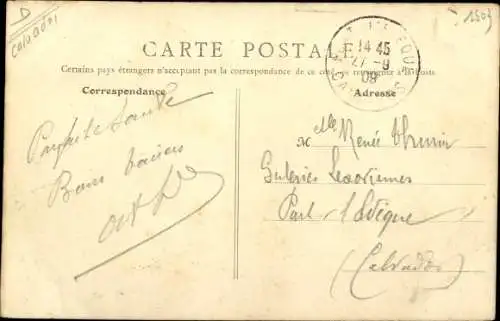 D
CALVADOS
1504
CARTE POSTALE
Certains pays étrangers n'acceptant pas la correspondance de ce côté, se renseigner à la Poste
PONT-L'EVEQUE
14 45
27 - 9
08
CALVADOS
Correspondance
Adresse
Parfaite santé
Bons baisers
Melle Renée
Galeries Lexoviennes
Pont l'Evêque
(Calvados)